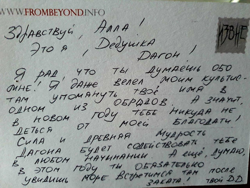 WWW.FROMBEYOND.INFO
ИЗВНЕ
ЗДРАВСТВУЙ, АЛЛА!
ЭТО Я, ДЕДУШКА
ДАГОН!
Я РАД, ЧТО ТЫ ДУМАЕШЬ ОБО
МНЕ! Я ДАЖЕ ВЕЛЕЛ МОИМ КУЛЬТИС-
ТАМ УПОМЯНУТЬ ТВОЁ ИМЯ В
ОДНОМ ИЗ ОБРЯДОВ. А ЗНАЧИТ
В НОВОМ ГОДУ ТЕБЕ НИКУДА НЕ
ДЕТЬСЯ ОТ МОЕЙ БЛАГОДАТИ!
СИЛА И ДРЕВНЯЯ МУДРОСТЬ
ДАГОНА БУДЕТ СОДЕЙСТВОВАТЬ ТЕБЕ
В ЛЮБОМ НАЧИНАНИИ. А ЕЩЁ, ДУМАЮ,
В ЭТОМ ГОДУ ТЫ ОБЯЗАТЕЛЬНО
УВИДИШЬ МОРЕ. ВСТРЕТИМСЯ ТАМ ПОСЛЕ
ЗАКАТА! ТВОЙ Д.Д.